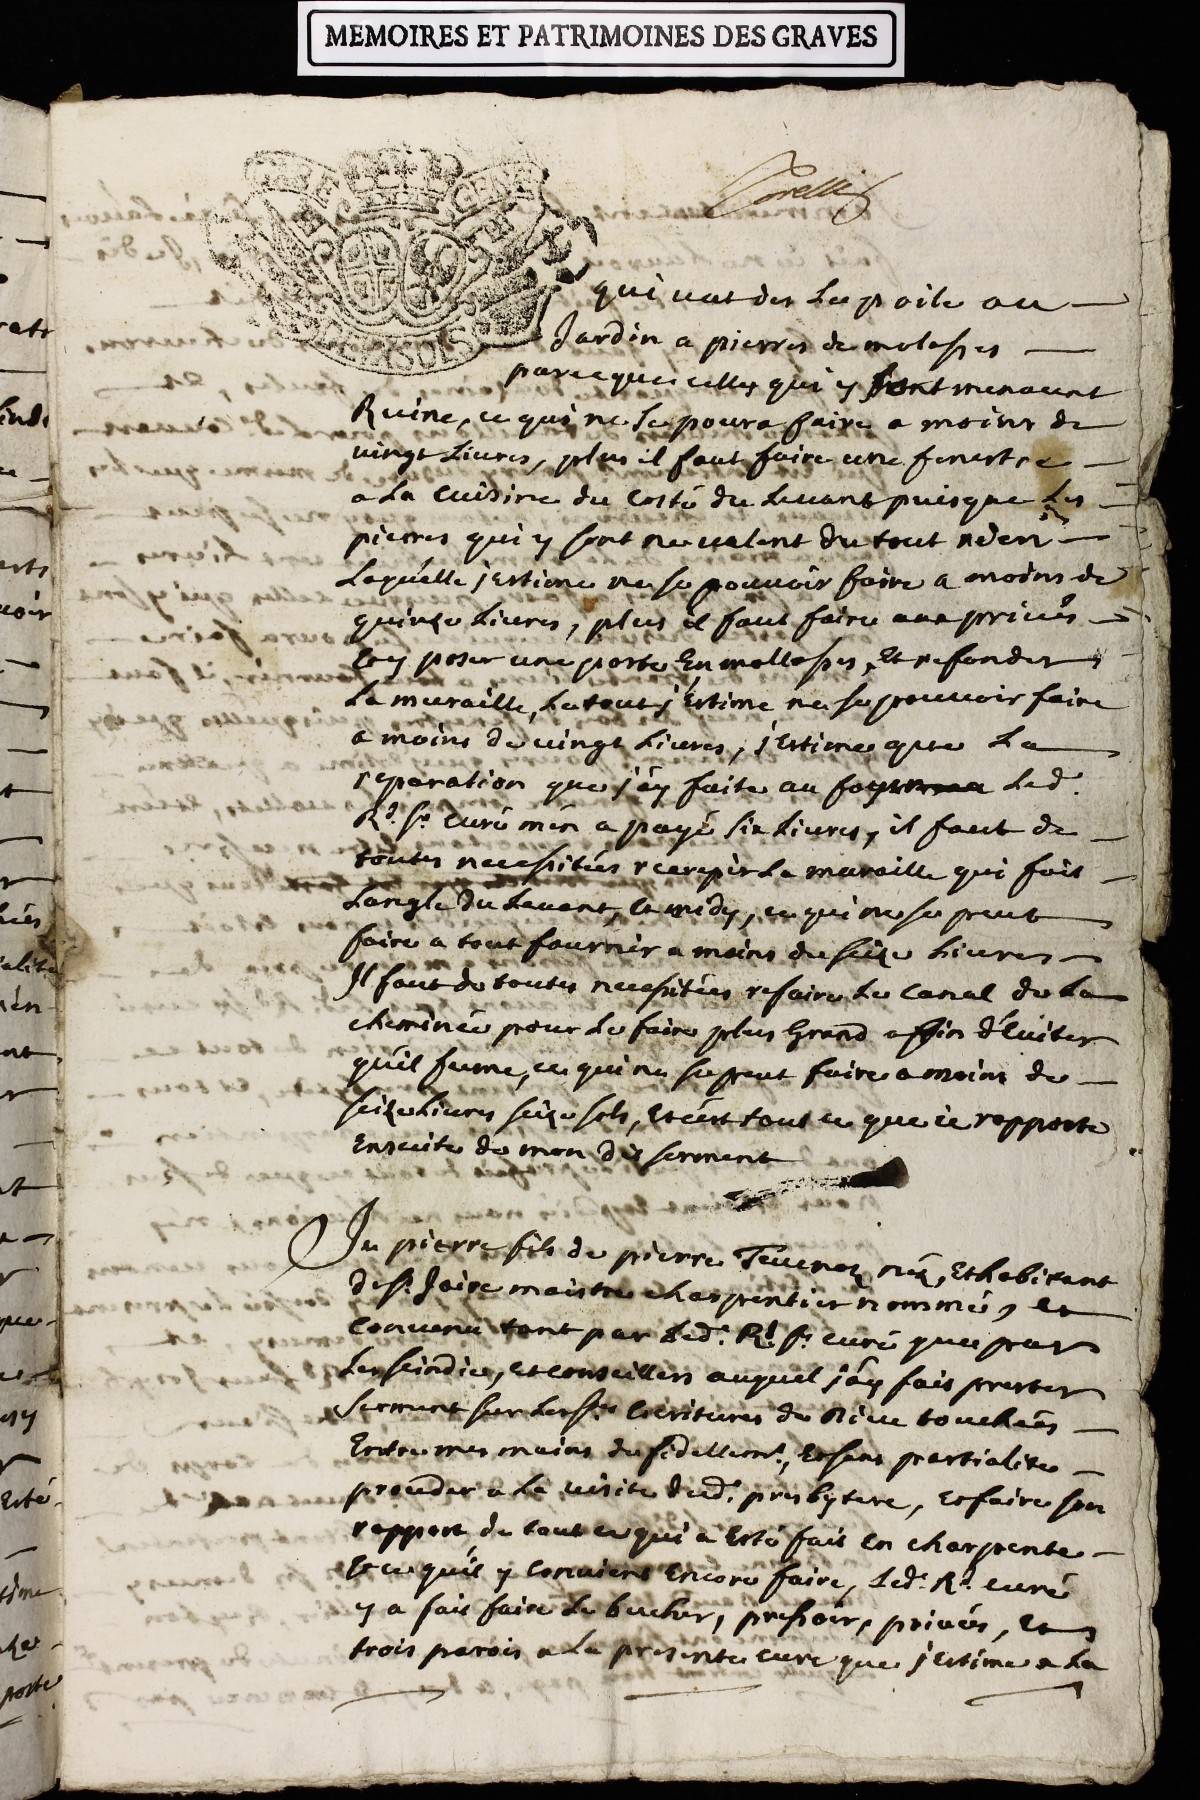 MEMOIRES ET PATRIMOINES DES GRAVES
Corelli
qui vat des le poile au
Jardin a pierres de molasses
parceque celles qui y sont menacent
Ruine, ce qui ne se poura faire a moins de
vingt Livres, plus il faut faire une fenestre
a La cuisine du costé du Levant puisque Les
pierres qui y sont ne valent du tout rien
Laquelle j'Estime ne se pouvoir faire a moins de
quinze Livres, plus il faut faire aux privés
et y poser une porte En mollasses, Et refonder
La muraille, Le tout j'Estime ne se pouvoir faire
a moins de vingt Livres, j'Estime que La
reparation que j'ay faite au Led.
Rd. Sr. Curé m'en a payé six Livres, il faut de
toutes necessitées recrepir La muraille qui fait
Langle du Levant, et midy, ce qui ne se peut
faire a tout fournir a moins de seize Livres
Il faut de toutes necessitées refaire Le Canal de La
cheminée pour Le faire plus Grand affin d'Eviter
qu'il fume, ce qui ne se peut faire a moins de
seize Livres seize sols, Et c'est tout ce que ie rapporte
Ensuite de mon dit serment
Je pierre fils de pierre Tevenoz néz, Et habitant
de St. Joire maistre charpentier nommé, et
Convenu tant par Led. Rd. Sr. curé que par
Les scindic, et conseillers auquel j'ay fais prester
Serment sur Les Stes. Escritures de Dieu touchées
Entre mes mains de fidellemt., Et sans partialite
proceder a La visite dud. presbytere, et faire son
rapport de tout ce qui a Esté fait en charpente
Et ce qu'il y convient Encore faire, Led. Rd. curé
y a fait faire Le bucher, pressoir, privés, Et
trois parois a La presente cure que j'Estime a La